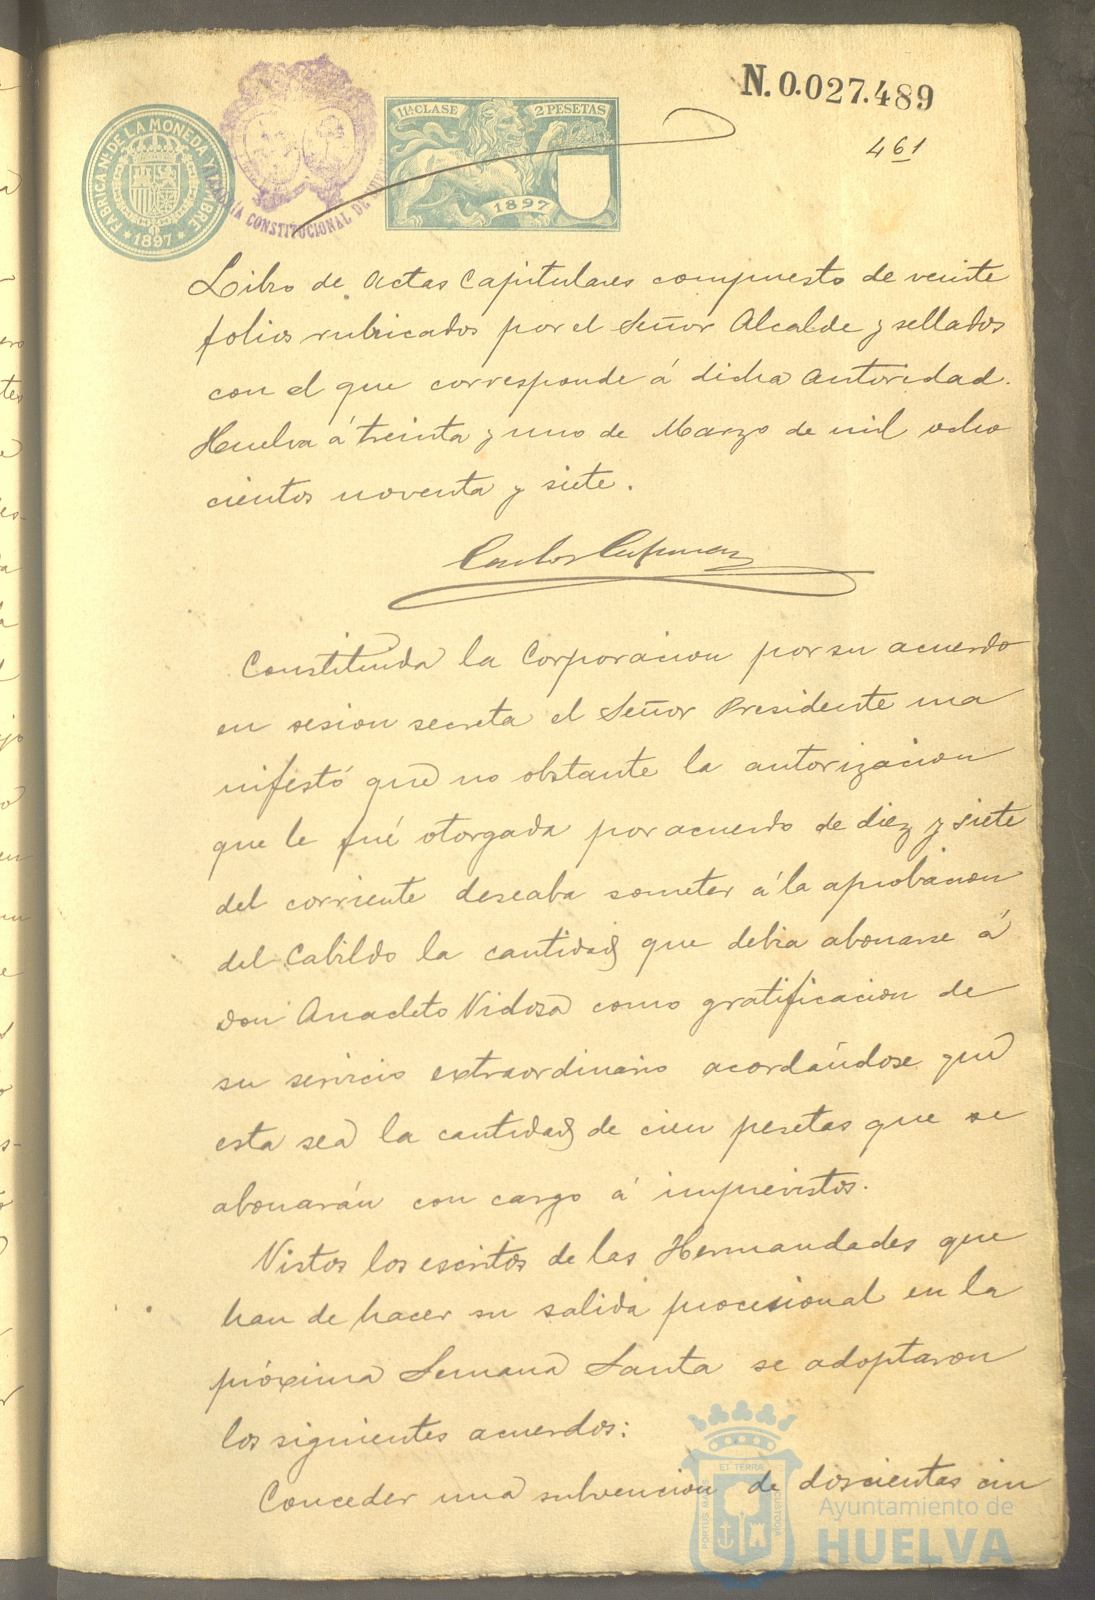 N. 0.027.489
461
FABRICA Nl. DE LA MONEDA Y TIMBRE
* 1897 *
CONSTITUCIONAL DE
11ª CLASE 2 PESETAS
1897
Libro de Actas Capitulares compuesto de veinte
folios rubricados por el Señor Alcalde y sellados
con el que corresponde á dicha autoridad.
Huelva á treinta y uno de Marzo de mil ocho
cientos noventa y siete.
Carlos
Constituida la Corporacion por su acuerdo
en sesion secreta el Señor Presidente ma
nifestó que no obstante la autorizacion
que le fué otorgada por acuerdo de diez y siete
del corriente deseaba someter á la aprobacion
del Cabildo la cantidad que debia abonarse á
Don Anacleto Vidosa como gratificacion de
su servicio extraordinario acordándose que
esta sea la cantidad de cien pesetas que se
abonarán con cargo á imprevistos.
Vistos los escritos de las Hermandades que
han de hacer su salida procesional en la
próxima Semana Santa se adoptaron
los siguientes acuerdos:
Conceder una subvencion de doscientas cin
ET TERRA
PORTUS MARIS
CUSTODIA
Ayuntamiento de
HUELVA